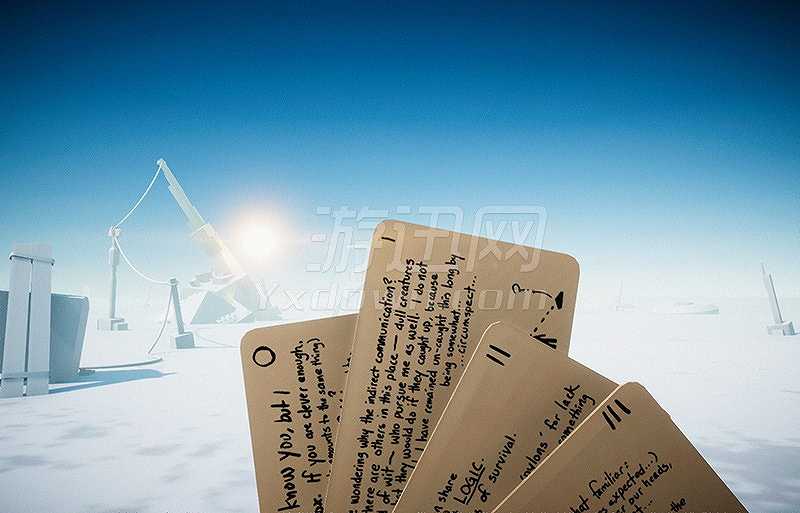 O
know you, but I
If you are clever enough,
amounts to the same thing)
I
Wondering why the indirect communication?
There are others in this place — dull creatures
of wit — who pursue me as well. I do not
what they would do if they caught up, because
I have remained un-caught this long by
being somewhat...
circumspect...
?
II
share
LOGIC.
of survival.
for lack
something
III
what familiar;
as expected...)
our heads,
the
游迅网